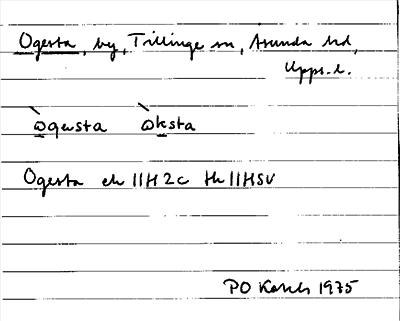 Ogesta, by, Tillinge sn, Asunda hd,
Upps. l.
ògusta òksta
Ogesta ek 11H 2c th 11HSV
PO 1975